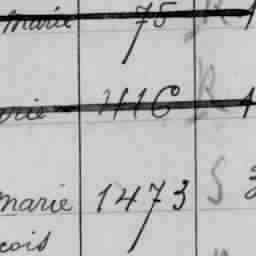 marie 75 R
rie 416 R
marie 1473 S
cois